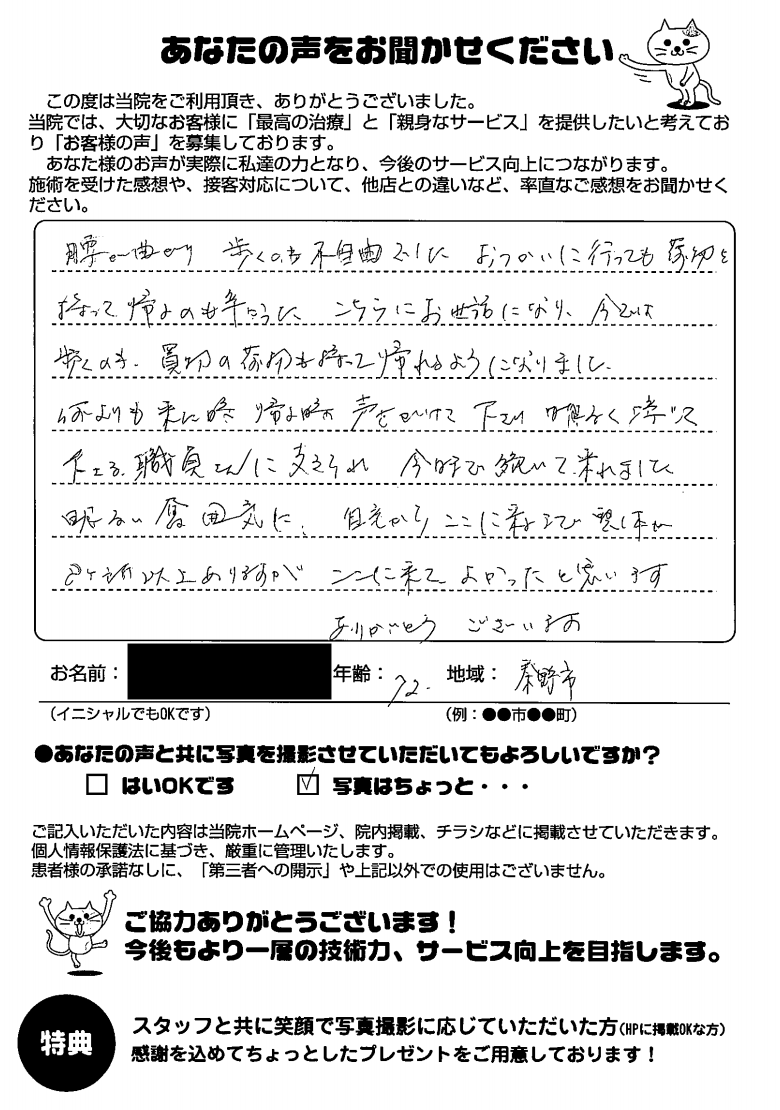 あなたの声をお聞かせください
この度は当院をご利用頂き、ありがとうございました。
当院では、大切なお客様に「最高の治療」と「親身なサービス」を提供したいと考えてお
り「お客様の声」を募集しております。
あなた様のお声が実際に私達の力となり、今後のサービス向上につながります。
施術を受けた感想や、接客対応について、他店との違いなど、率直なご感想をお聞かせく
ださい。
腰が曲がり 歩くのも不自由でした おつかいに行っても荷物を
持って帰るのも辛かった こちらにお世話になり、今では
歩くのも、買物の荷物も持って帰れるようになりました
何よりも来た時 帰る時 声をかけて下さり 明るく
下さる職員さんに支えられ 今日まで続いて来れました
明るい雰囲気に、自宅から ここに来るまで 整体が
2ヶ所以上ありますが ここに来て よかったと思います
ありがとう ございます
お名前： 年齢：72. 地域：秦野市
（イニシャルでもOKです） （例：●●市●●町）
●あなたの声と共に写真を撮影させていただいてもよろしいですか？
□ はいOKです ☑ 写真はちょっと・・・
ご記入いただいた内容は当院ホームページ、院内掲載、チラシなどに掲載させていただきます。
個人情報保護法に基づき、厳重に管理いたします。
患者様の承諾なしに、「第三者への開示」や上記以外での使用はございません。
ご協力ありがとうございます！
今後もより一層の技術力、サービス向上を目指します。
特典
スタッフと共に笑顔で写真撮影に応じていただいた方（HPに掲載OKな方）
感謝を込めてちょっとしたプレゼントをご用意しております！